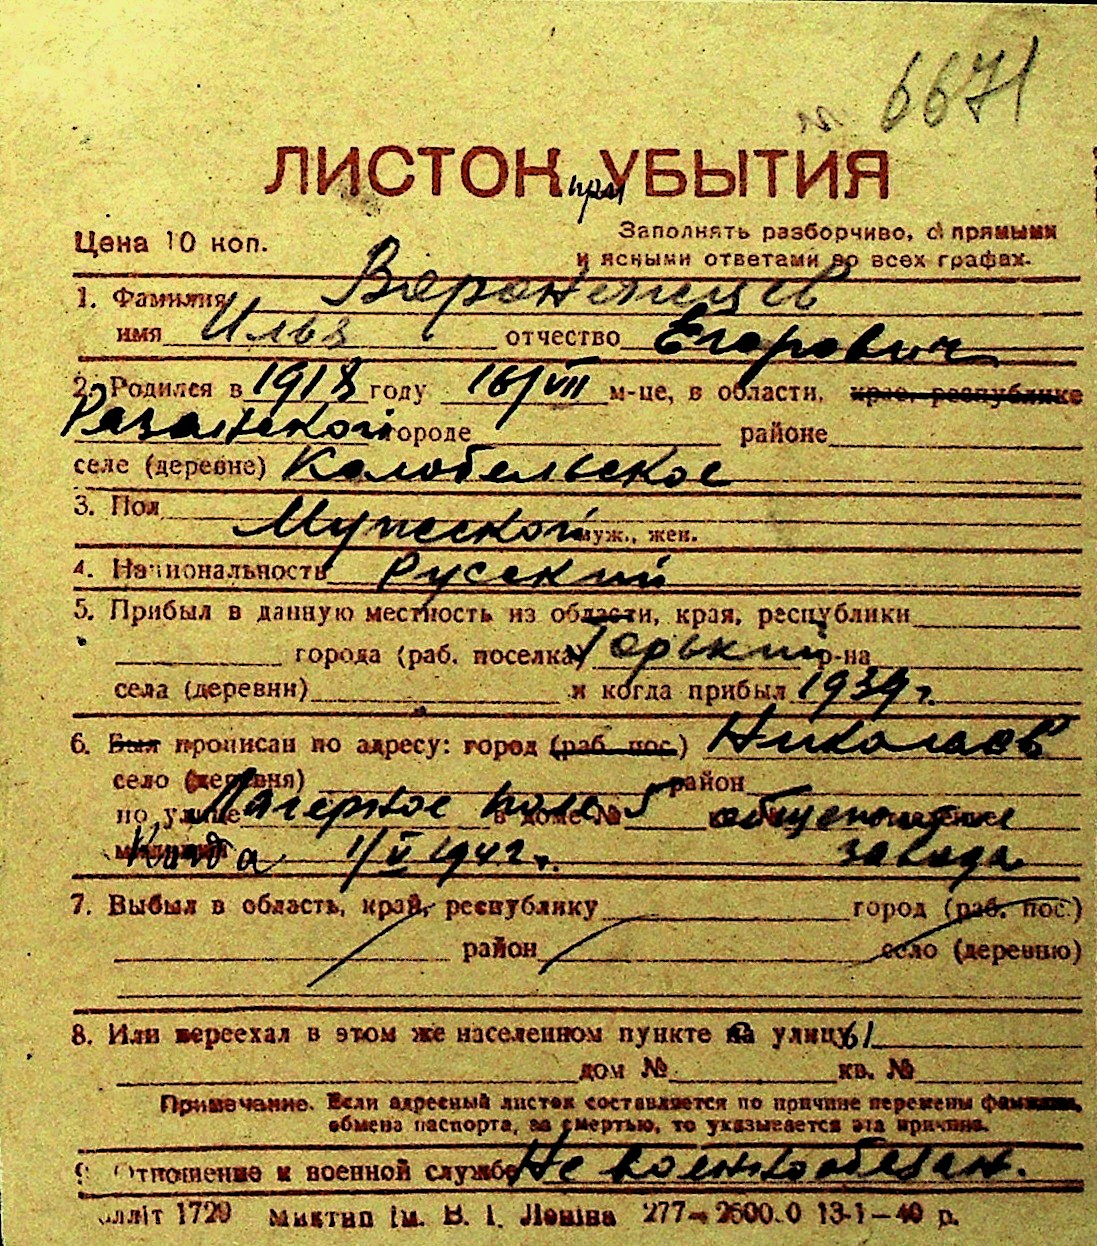 № 6671
ЛИСТОК при УБЫТИЯ
Цена 10 коп.
Заполнять разборчиво, с прямыми
и ясными ответами во всех графах.
1. Фамилия Воронежцев
имя Илья отчество Егорович
2. Родился в 1918 году 16/VII м-це, в области, крае, республике
Разанской городе районе
селе (деревне) Колобельское
3. Пол Мужской муж., жен.
4. Национальность Русский
5. Прибыл в данную местность из области, края, республики
города (раб. поселка) Горький р-на
села (деревни) и когда прибыл 1939 г.
6. Был прописан по адресу: город (раб. пос.) Николаев
село (деревня) район
по улице Лагерное поле в доме № 5 общежитие
1/V 1942 г. завода
7. Выбыл в область, край, республику город (раб. пос.)
район село (деревню)
8. Или переехал в этом же населенном пункте на улицу 61
дом № кв. №
Примечание. Если адресный листок составляется по причине перемены фамилии,
обмена паспорта, за смертью, то указывается эта причина.
9. Отношение к военной службе Не военнообезан.
лліт 1729 Миктип ім. В. І. Леніна 277—2600.0 13-1—40 р.